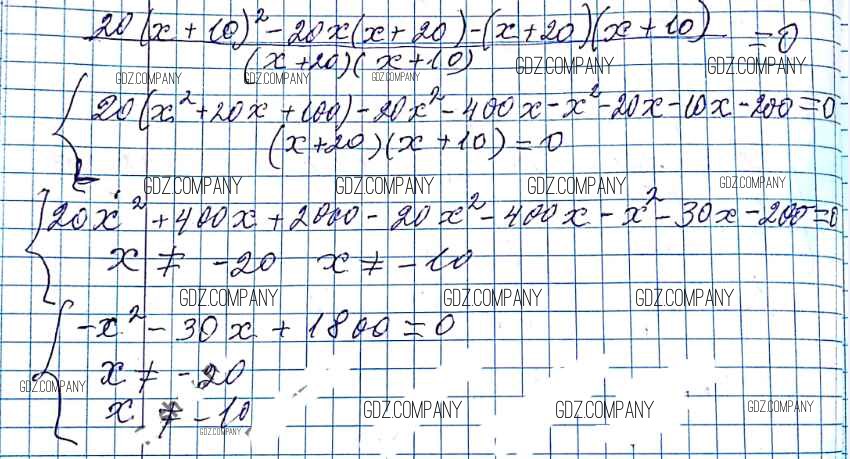 20(x+10)² - 20x(x+20) - (x+20)(x+10) = 0
(x+20)(x+10)
GDZ.COMPANY GDZ.COMPANY GDZ.COMPANY GDZ.COMPANY GDZ.COMPANY
20(x²+20x+100) - 20x² - 400x - x² - 20x - 10x - 200 = 0
(x+20)(x+10) = 0
GDZ.COMPANY GDZ.COMPANY GDZ.COMPANY GDZ.COMPANY
20x² + 400x + 2000 - 20x² - 400x - x² - 30x - 200 = 0
x ≠ -20 x ≠ -10
GDZ.COMPANY GDZ.COMPANY GDZ.COMPANY
-x² - 30x + 1800 = 0
x ≠ -20
GDZ.COMPANY
x ≠ -10
GDZ.COMPANY GDZ.COMPANY GDZ.COMPANY GDZ.COMPANY